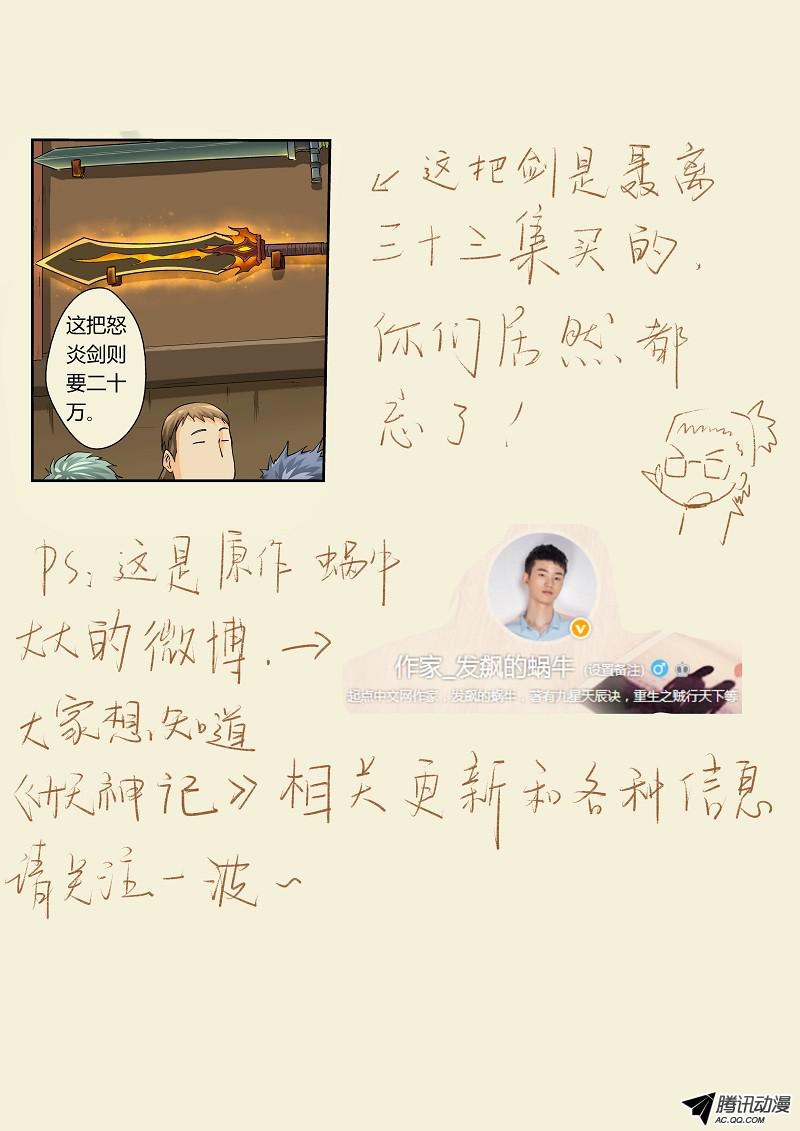 这把怒
炎剑则
要二十
万。
↙这把剑是聂离
三十三集买的,
你们居然都
忘了!
PS:这是原作蜗牛
大大的微博.→
作家_发飙的蜗牛 (设置备注)
起点中文网作家,发飙的蜗牛,著有九星天辰诀,重生之贼行天下等
大家想知道
《妖神记》相关更新和各种信息
请关注一波~
腾讯动漫
AC.QQ.COM